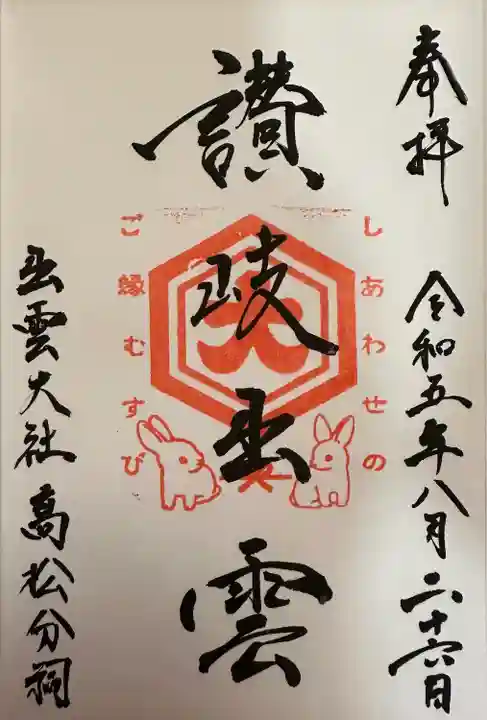 奉拝
令和五年八月二十六日
しあわせの
讃岐出雲
大
ご縁むすび
出雲大社高松分祠